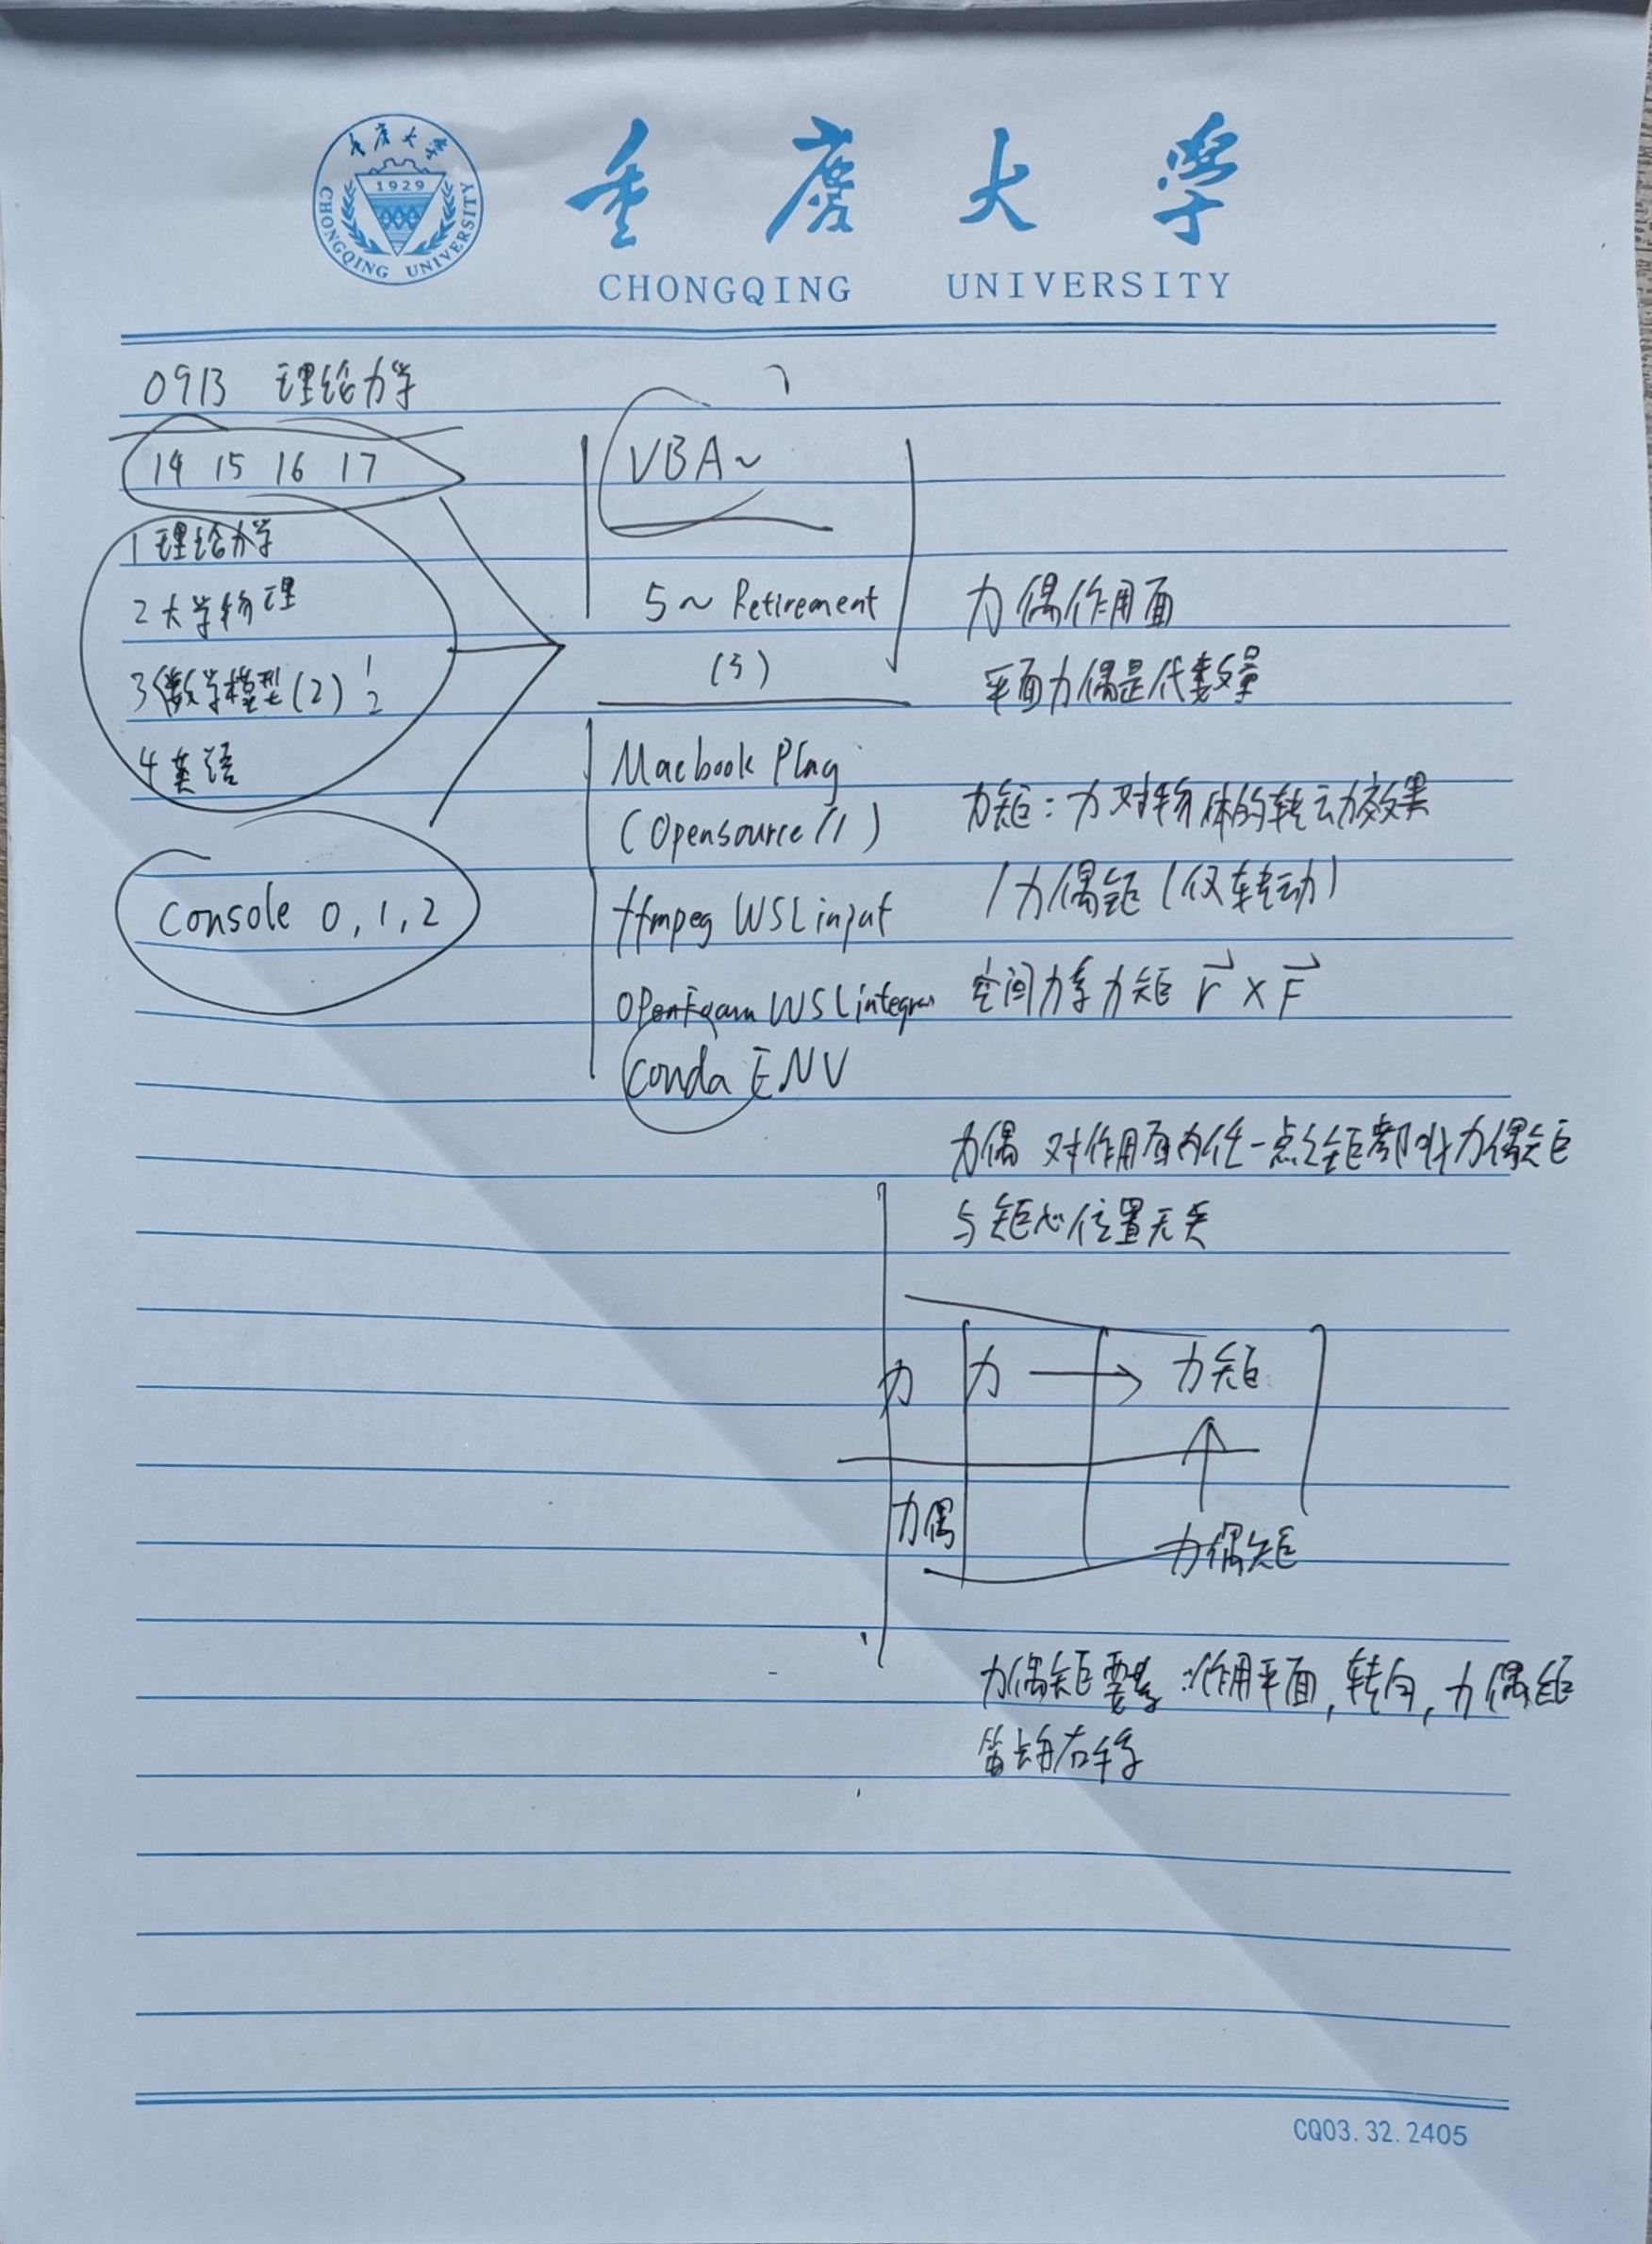 重庆大学
1929
CHONGQING UNIVERSITY
重庆大学
CHONGQING UNIVERSITY
0913 理论力学
14 15 16 17
1 理论力学
2 大学物理
3 数学模型(2) 1 2
4 英语
Console 0,1,2
VBA~
5~ Retirement
(5)
Macbook Plag
(Opensource //)
ffmpeg WSL input
OpenFoam WSL integra
Conda ENV
力偶作用面
平面力偶是代数量
力矩:力对物体的转动效果
/力偶矩(仅转动)
空间力系力矩 r⃗ × F⃗
力偶 对作用面内任一点之矩都叫力偶矩
与矩心位置无关
力 力 → 力矩
力偶 力偶矩
力偶矩要素:作用平面,转向,力偶矩
右手
CQ03.32.2405